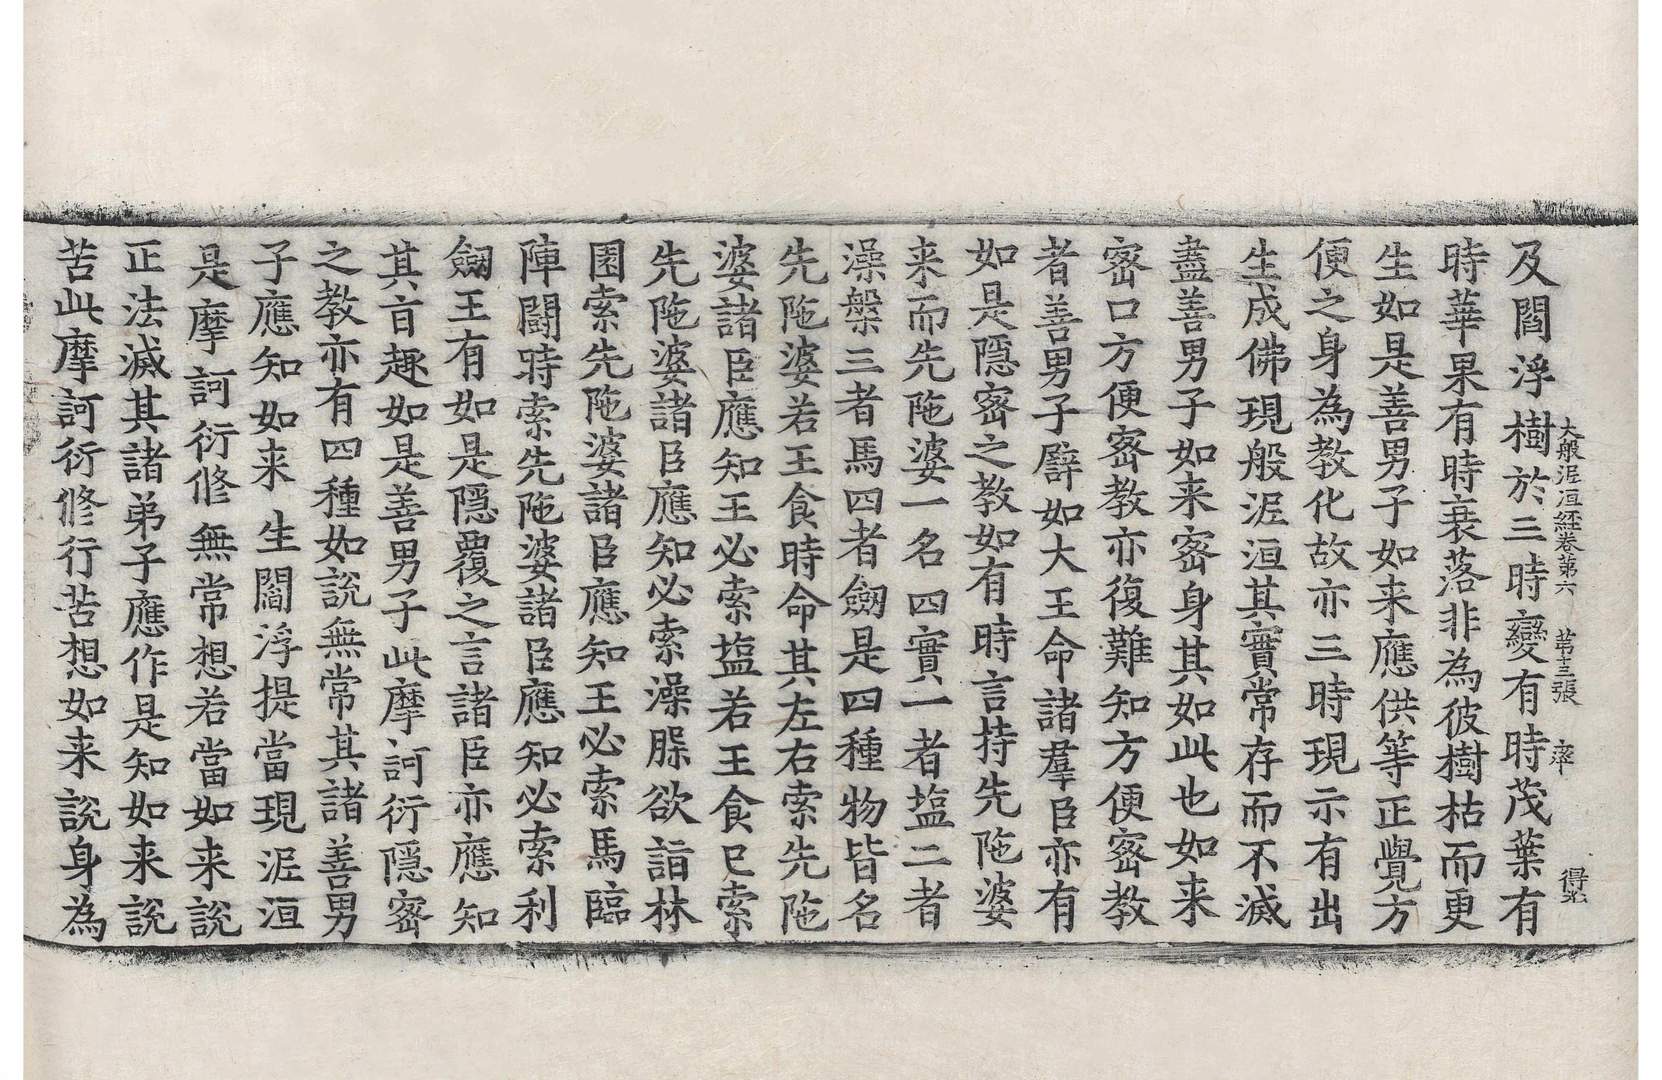 大般泥洹經卷第六 第十三張 率 得
及閻浮樹於三時變有時茂葉有
時華果有時衰落非為彼樹枯而更
生如是善男子如来應供等正覺方
便之身為教化故亦三時現示有出
生成佛現般泥洹其實常存而不滅
盡善男子如来密身其如此也如来
密口方便密教亦復難知方便密教
者善男子辟如大王命諸羣臣亦有
如是隱密之教如有時言持先陁婆
来而先陁婆一名四實一者塩二者
澡槃三者馬四者劒是四種物皆名
先陁婆若王食時命其左右索先陁
婆諸臣應知王必索塩若王食已索
先陁婆諸臣應知必索澡槃欲詣林
園索先陁婆諸臣應知王必索馬臨
陣鬪時索先陁婆諸臣應知必索利
劒王有如是隱覆之言諸臣亦應知
其旨趣如是善男子此摩訶衍隱密
之教亦有四種如說無常其諸善男
子應知如来生閻浮提當現泥洹
是摩訶衍修無常想若當如来說
正法滅其諸弟子應作是知如来說
苦此摩訶衍修行苦想如来說身為